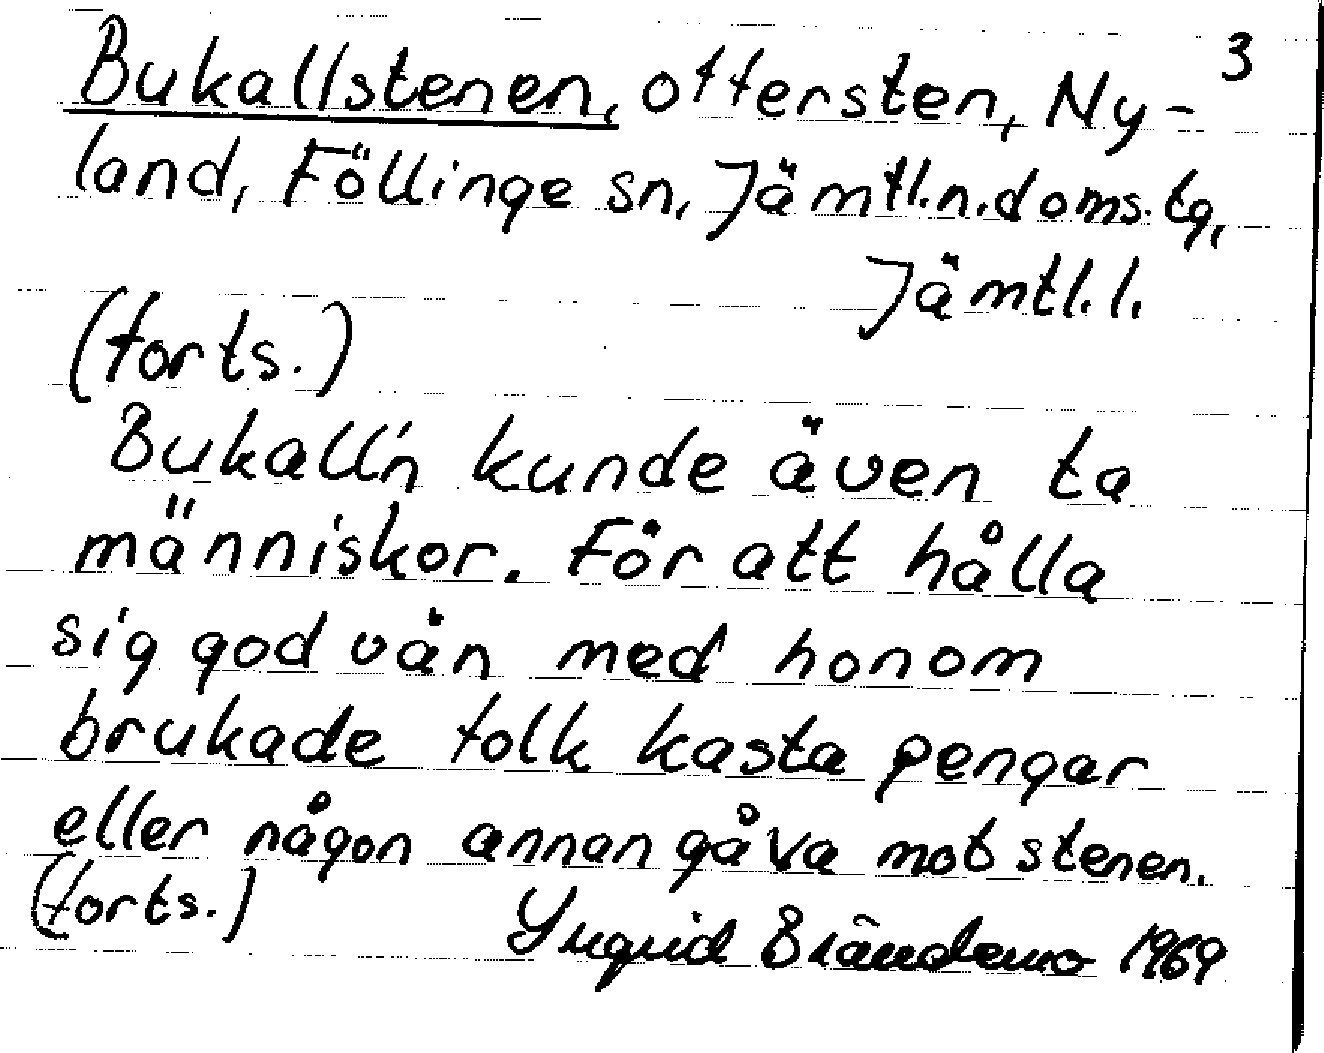 3
Bukallstenen, offersten, Ny-
land, Föllinge sn, Jämtl.n.doms.tg,
Jämtl.l.
(forts.)
Bukall'n kunde även ta
människor. För att hålla
sig god vän med honom
brukade folk kasta pengar
eller någon annan gåva mot stenen.
(forts.)
Yngvid Brändemo 1969